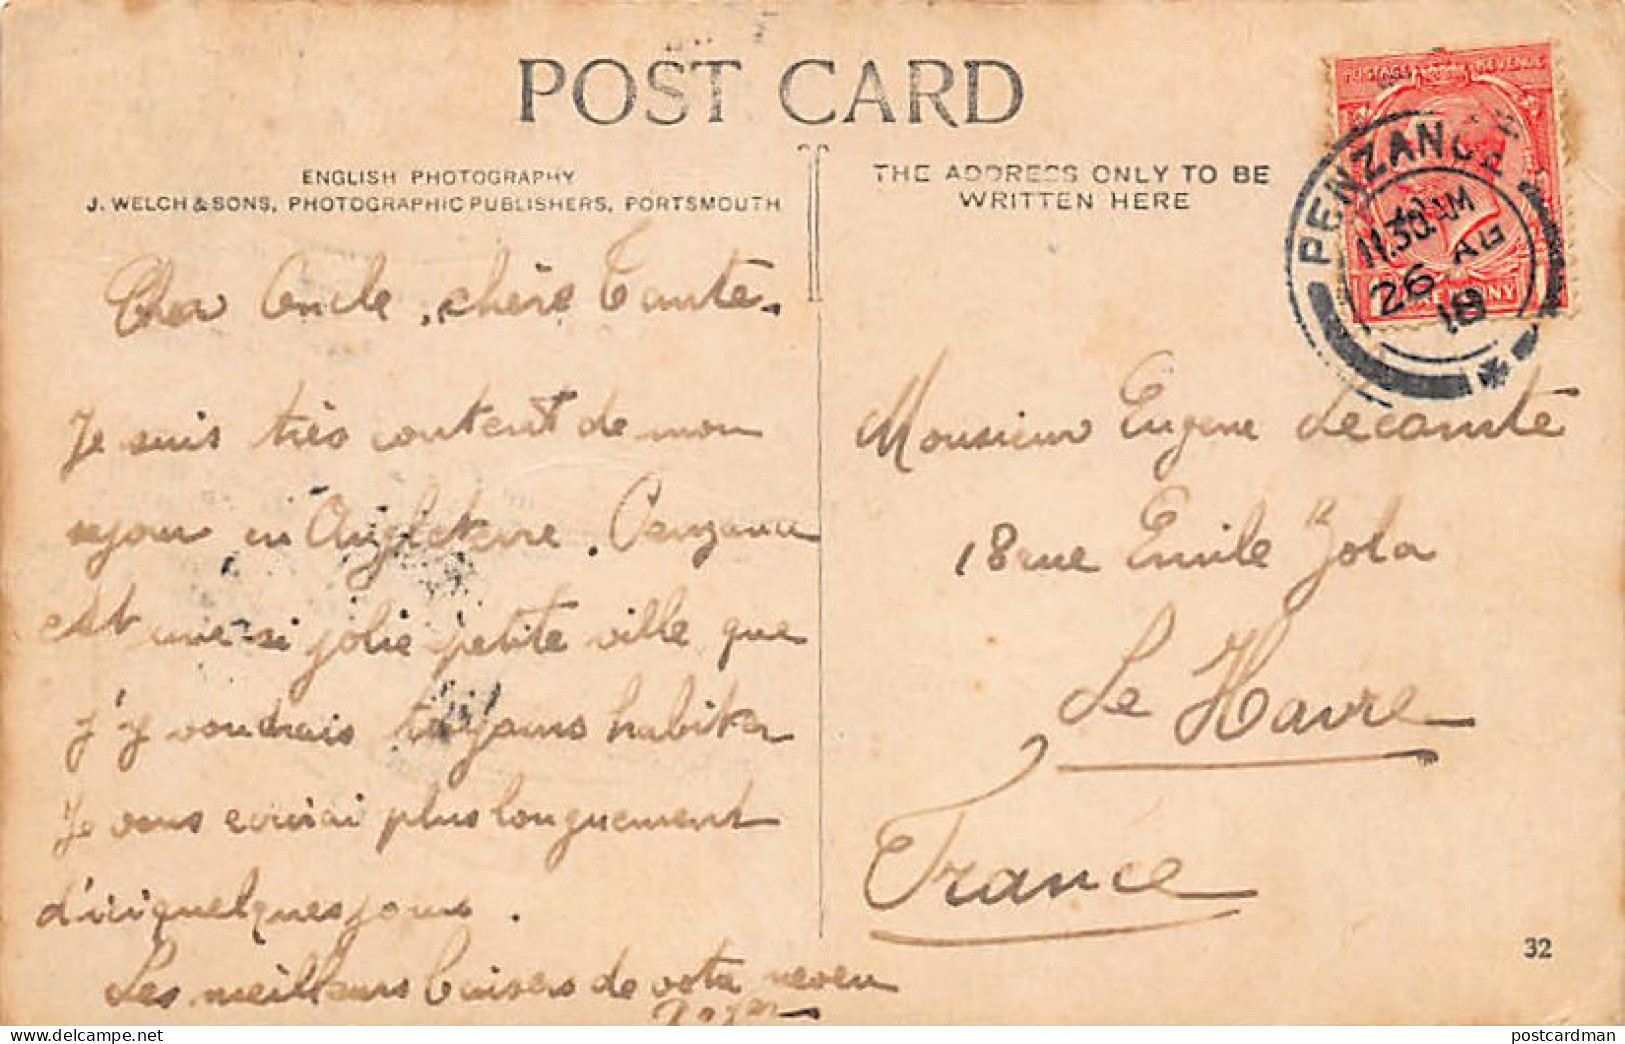 POST CARD
ENGLISH PHOTOGRAPHY
J. WELCH & SONS, PHOTOGRAPHIC PUBLISHERS, PORTSMOUTH
Cher Oncle, chère Tante.
Je suis très content de mon
sejour en Angleterre. Penzance
est une si jolie petite ville que
j'y voudrais toujours habiter
Je vous ecrirai plus longuement
d'ici quelques jours.
Les meilleurs baisers de votre neveu
Roger
THE ADDRESS ONLY TO BE
WRITTEN HERE
POSTAGE REVENUE
PENZANCE
11.30 AM
26 AP
ONE PENNY
Monsieur Eugene Lecomte
18 rue Emile Zola
Le Havre
France
32
postcardman